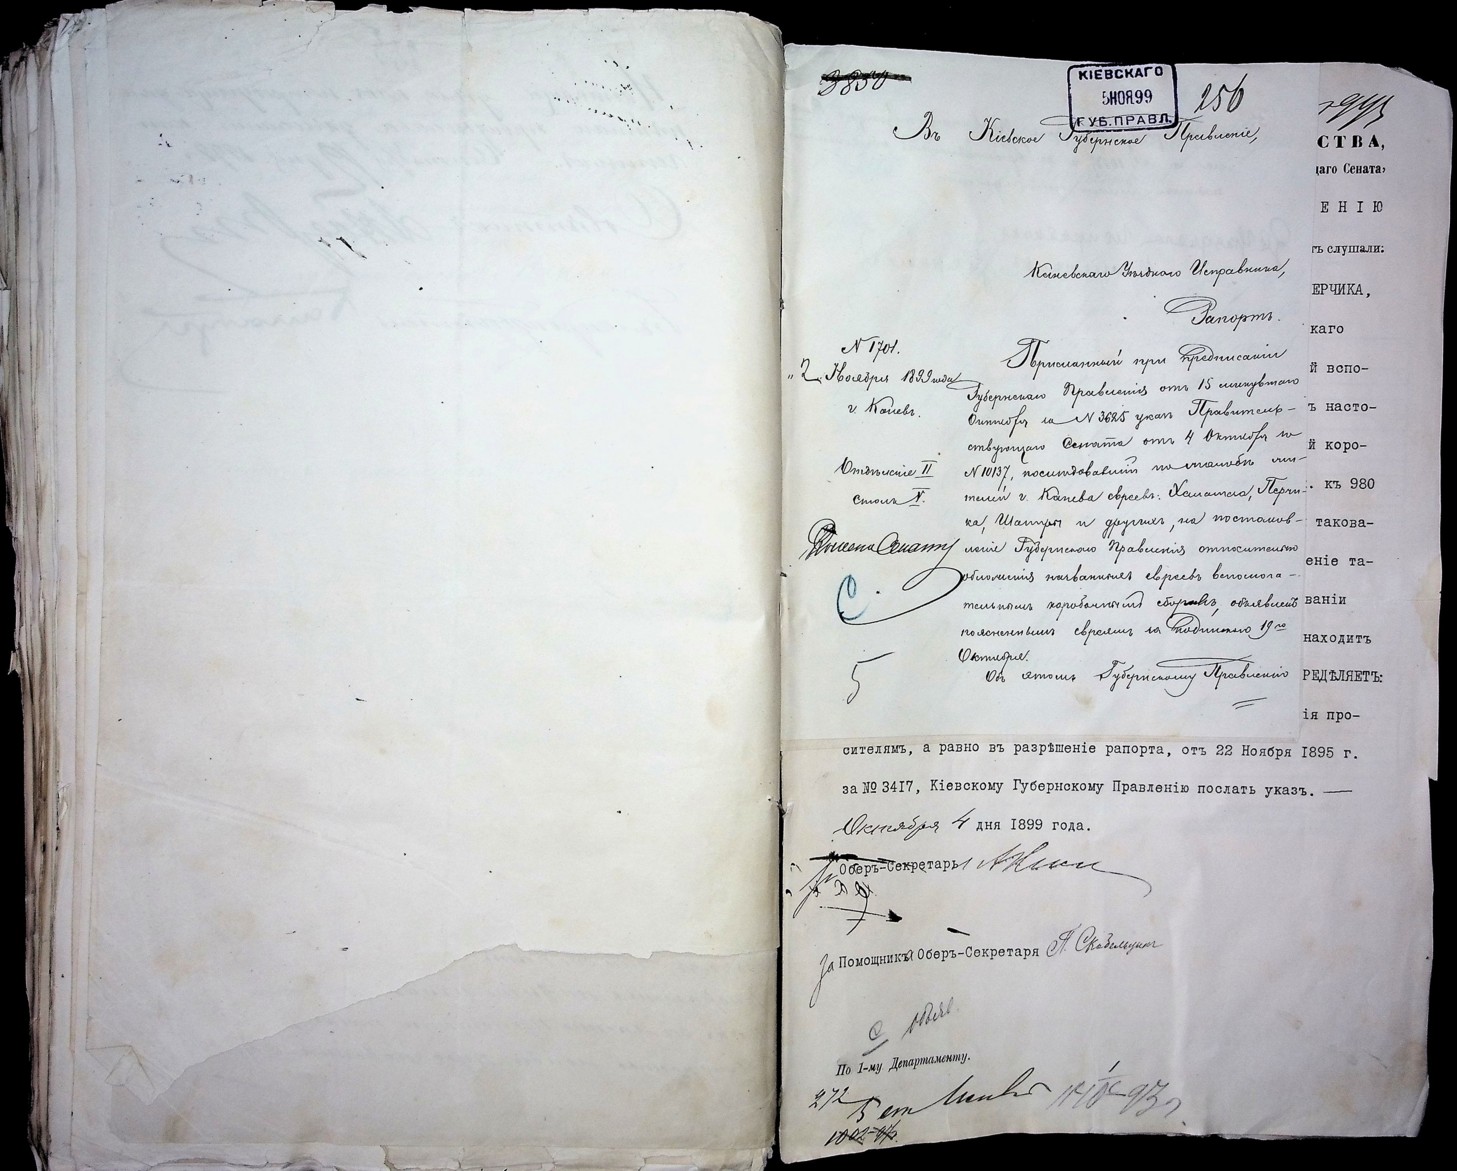 3850
КІЕВСКАГО
5 НОЯ 99
ГУБ. ПРАВЛ.
256
Въ Кіевское Губернское Правленіе,
Каневскаго Уѣзднаго Исправника,
Рапортъ.
N 1701.
"2" Ноября 1899 года
г. Каневъ.
Отдѣленіе II
столъ V.
Присланный при предписаніи
Губернскаго Правленія отъ 15 минувшаго
Октября за N 3625 указъ Правитель-
ствующаго Сената отъ 4 Октября за
N 10137, послѣдовавшій по жалобѣ жи-
телей г. Канева евреевъ: Хаматса, Перчи-
ка, Шапиры и другихъ, на постанов-
леніе Губернскаго Правленія относительно
обложенія названныхъ евреевъ вспомога-
тельнымъ коробочнымъ сборомъ, объявленъ
поясненнымъ евреямъ за подпискою 19го
Октября.
Объ этомъ Губернскому Правленію
5
СТВА,
щаго Сената,
ЕНІЮ
тъ слушали:
ЕРЧИКА,
каго
й вспо-
ъ насто-
й коро-
. къ 980
такова-
еніе та-
ваніи
находитъ
РЕДѢЛЯЕТЪ:
ія про-
сителямъ, а равно въ разрѣшеніе рапорта, отъ 22 Ноября 1895 г.
за № 3417, Кіевскому Губернскому Правленію послать указъ. —
Октября 4 дня 1899 года.
Оберъ-Секретарь
За Помощника Оберъ-Секретаря
По 1-му Департаменту.
272